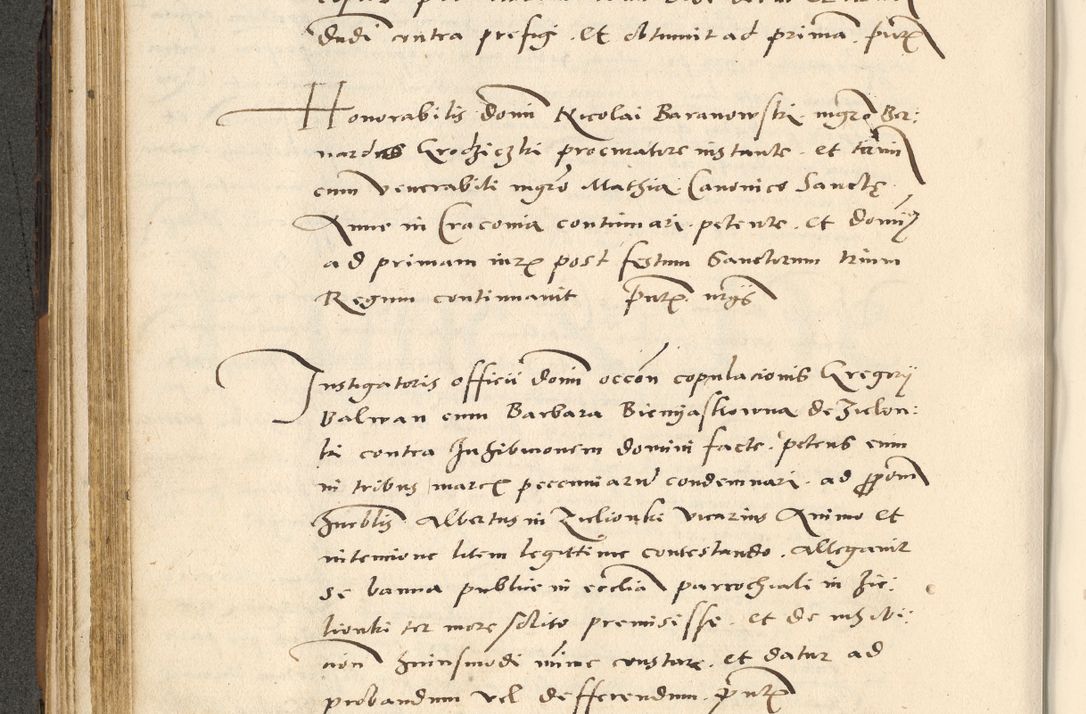 dudi contra prefigi. Et obtinuit ad prima. pntꝫ
Honorabilis domi Nicolai Baranowski. mgro Ber:
nardus Grodziczki procuratore instante. et trmi
cum venerabili mgro Mathia. Canonico Sanctę.
Anne in Craconia continuari. petente. et domi9
ad primam iurꝫ post festum Sanctorum trium
Regum continuauit pntꝫ. mgis
Instigatoris officii domi occon copulacionis Gregorii
Balwan cum Barbara Biemiaskowna de Zielon:
ki contra Inhibicionem domini facte. petens eum
in tribus marcꝫ pecuniarum condemnari. ad
Albertus in Zielionki vicarius Animo et
intencione litem legittime contestando. Allegauit
se banna publice in ecclia parrochiali in Zie:
lionki ter more solito premisisse. et de inhibi:
cion huiusmodi mime constare. et datur ad
probandum vel defferendum. pntꝫ